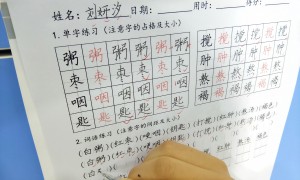 姓名:刘妍汐 日期: 用时: 得分:
1.单字练习(注意字的占格及大小)
粥 粥 粥 粥 粥 粥 搅 搅 搅 搅 搅 搅
枣 枣 枣 枣 枣 枣 肿 肿 肿 肿 肿 肿
咽 咽 咽 咽 咽 咽 熬 熬 熬 熬 熬 熬
匙 匙 匙 匙 匙 匙 褐 褐 褐 褐 褐 褐
2.词语练习(注意字的间距及大小)
(白粥)(红枣)(哽咽)(钥匙)(打搅)(红肿)(熬粥)(褐色)
(白粥)(红枣)(哽咽)
(白